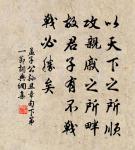 以天下之所順
攻親戚之所畔
故君子有不戰
戰必勝矣
孟子公孫丑章句下第
一節詞典網集